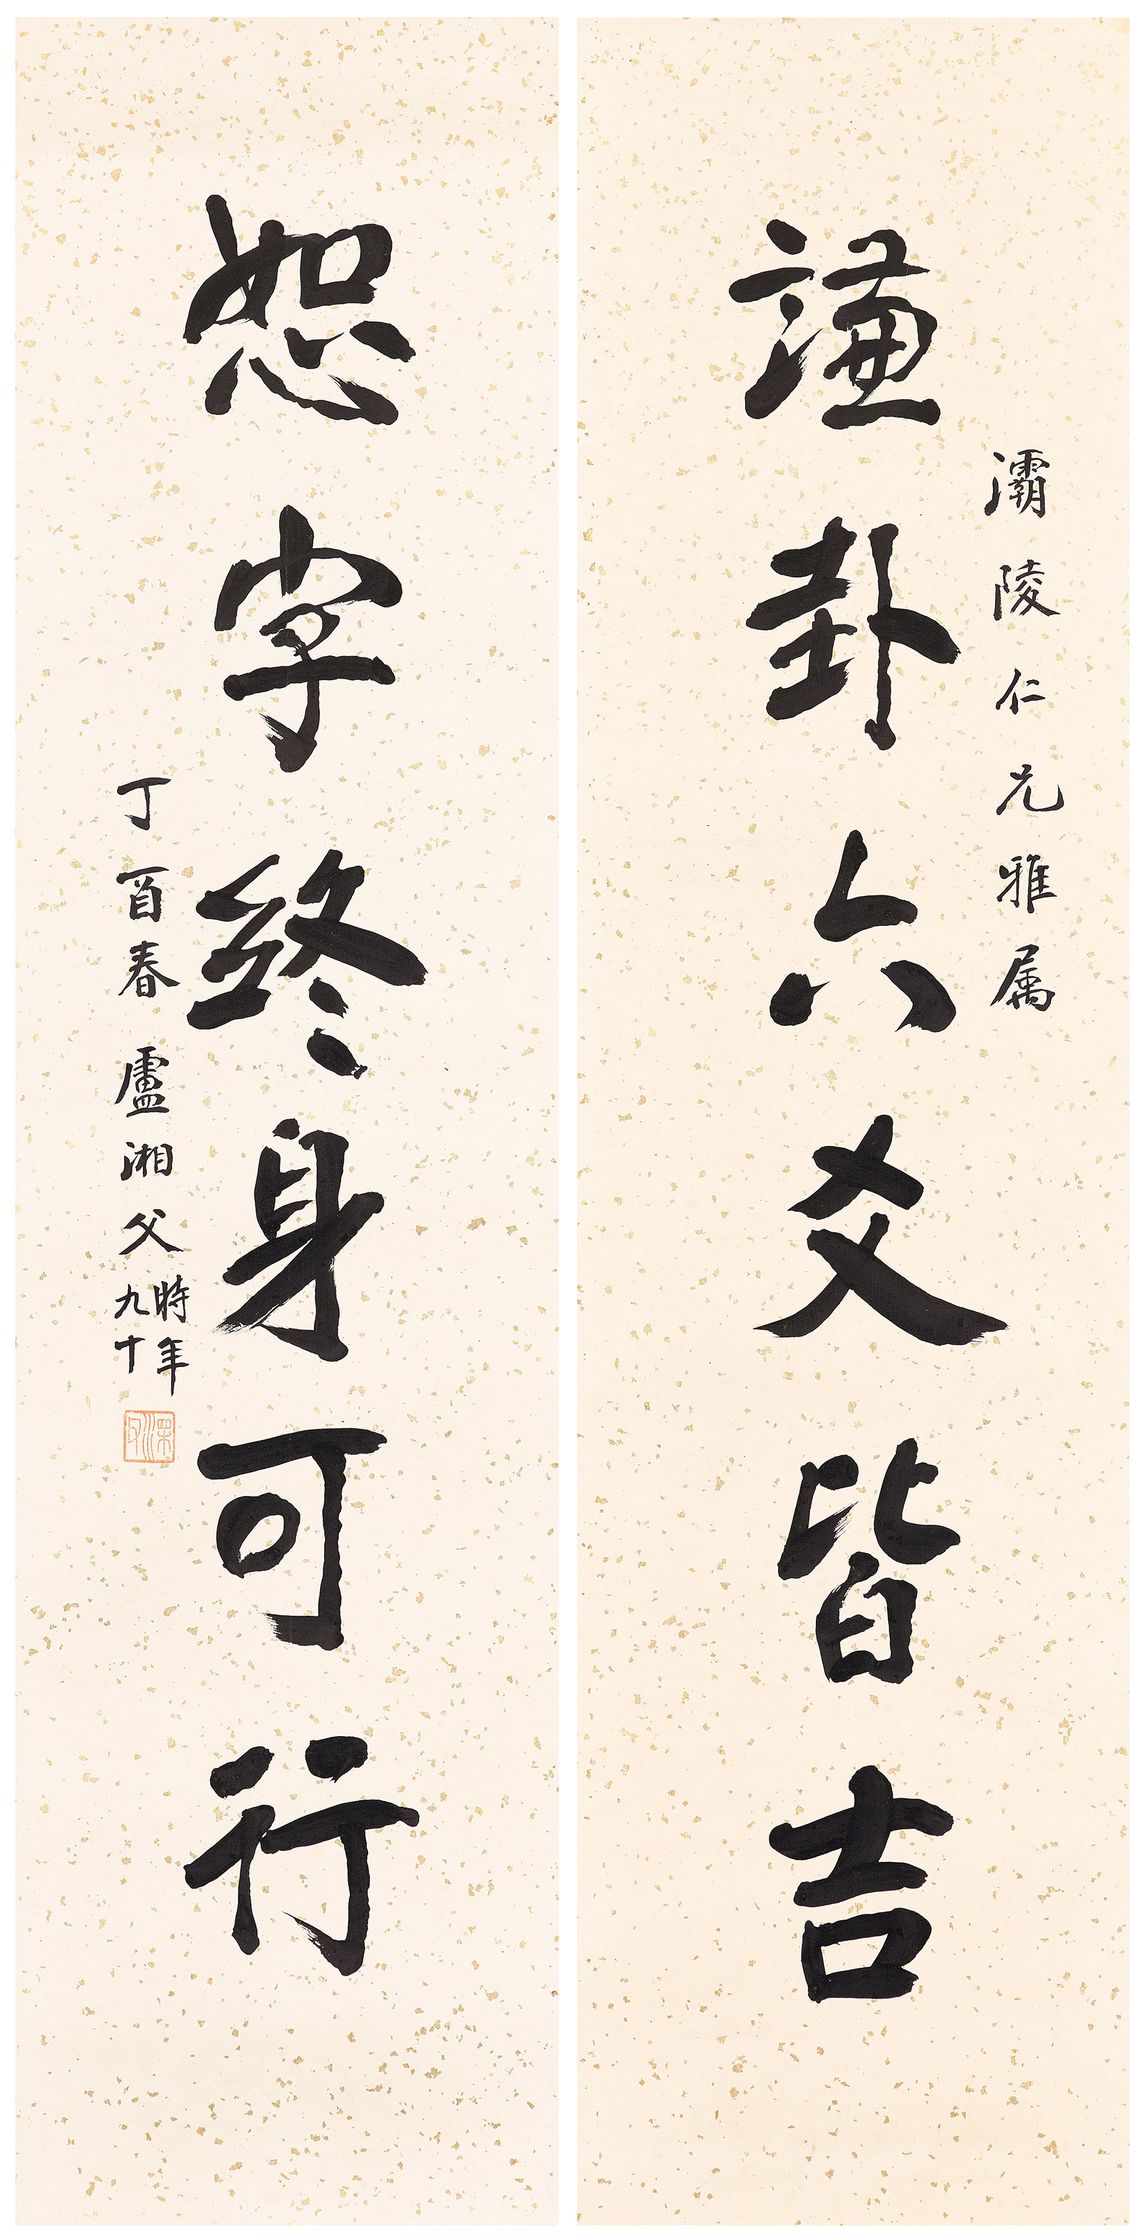 謙卦六爻皆吉
灞陵仁兄雅属
恕字終身可行
丁酉春 盧湘父
時年
九十